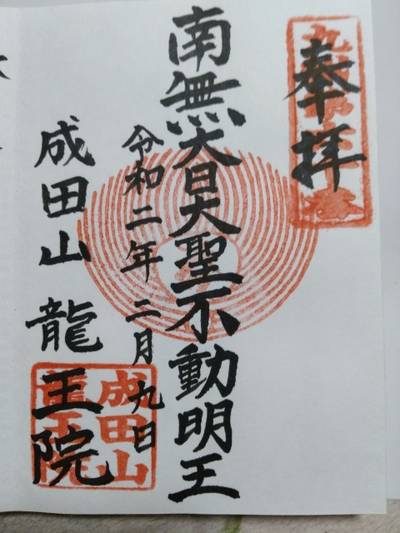 奉拝
南無大日大聖不動明王
令和二年二月九日
成田山龍王院
成田山
龍王院